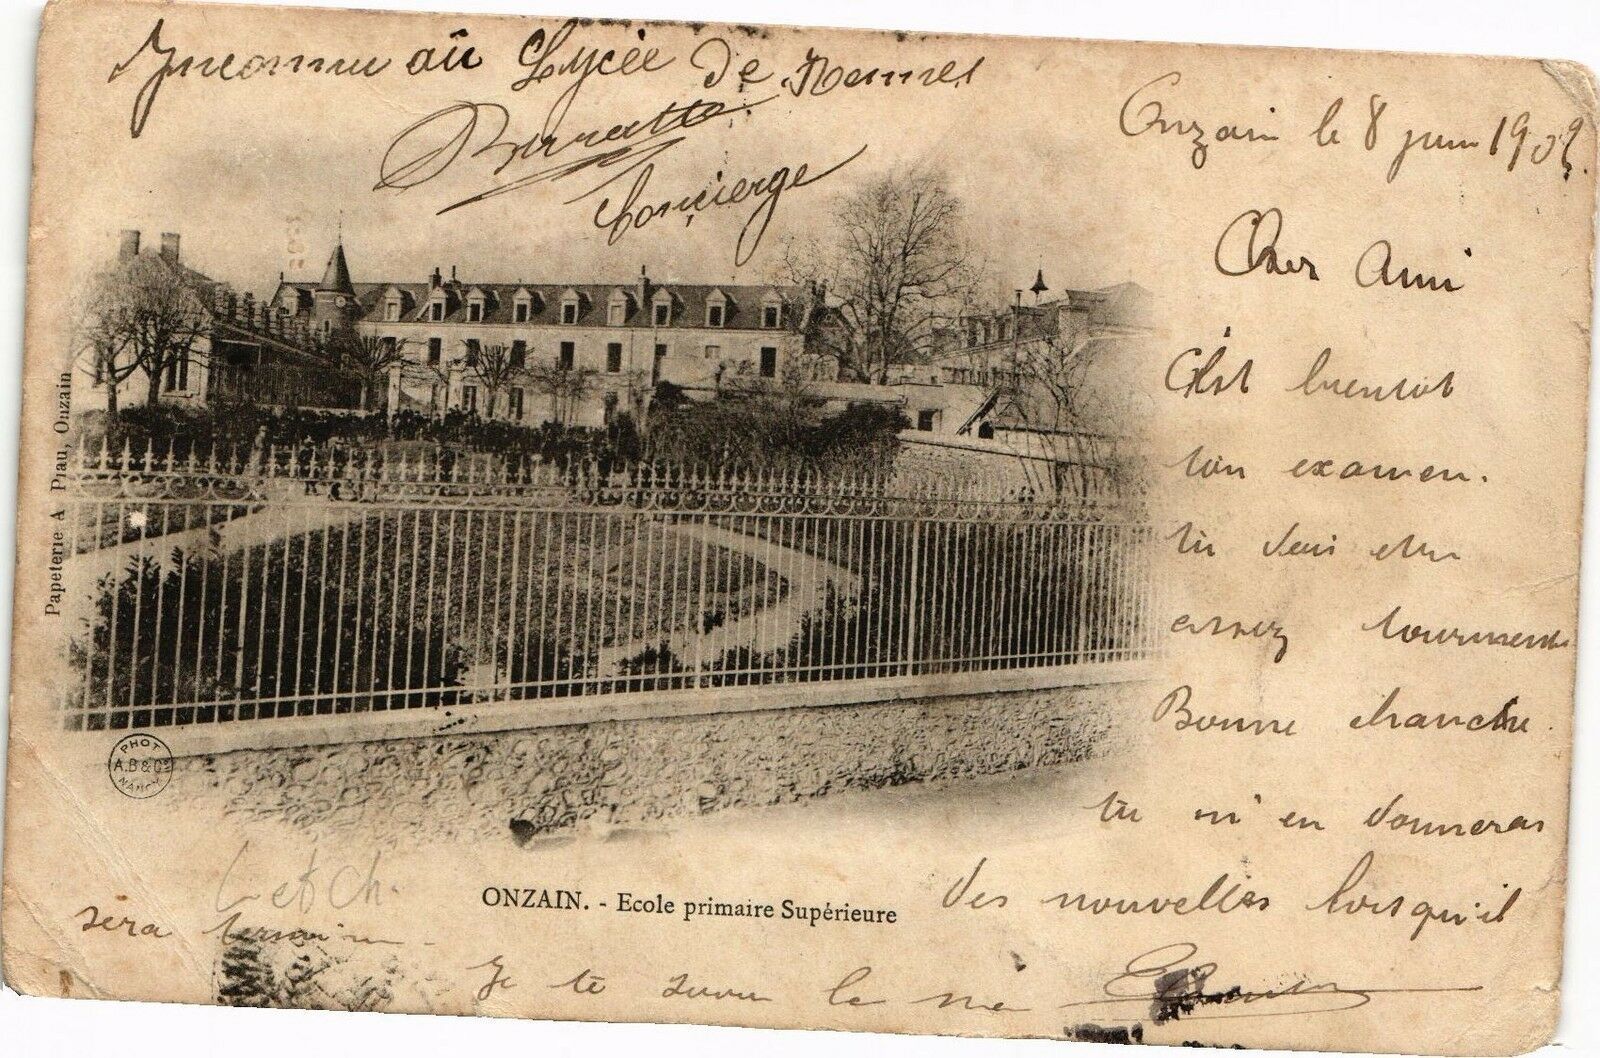 Inconnu au Lycée de Rennes
Concierge
Onzain le 8 juin 190
Cher Ami
C'est bientot
ton examen.
tu dois etre
assez tourmente
Bonne chanche.
tu m'en donneras
des nouvelles lorsqu'il
sera termine.
Je te serre la
Papeterie A Piau, Onzain
PHOT
A.B & Cie
NANCY
L et Ch.
ONZAIN. - Ecole primaire Supérieure